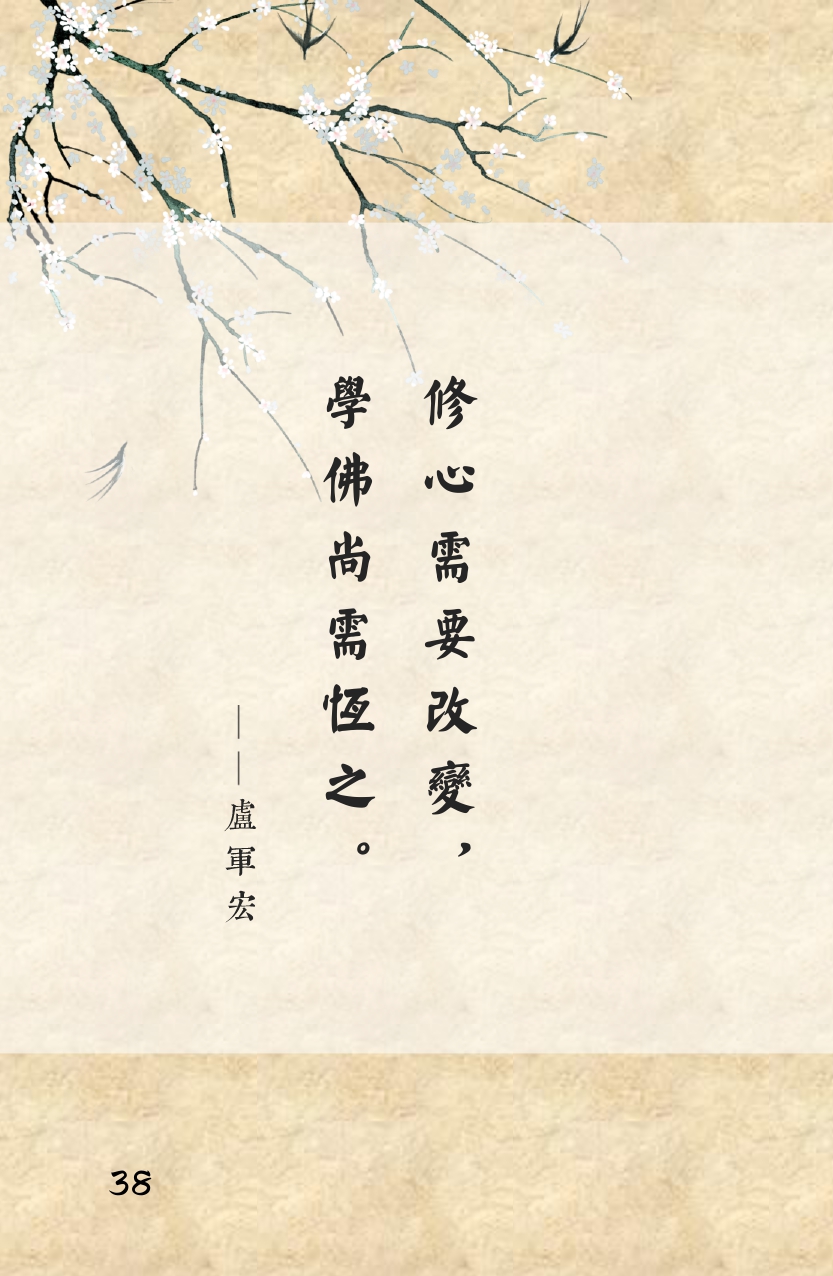 修心需要改變，
學佛尚需恆之。
——盧軍宏
38